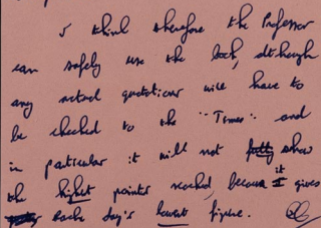 I think therefore the Professor
can safely use the book, although
any actual quotations will have to
be checked to the "Times" and
in particular it will not show
the highest points reached, because it gives
each day's lowest figure.